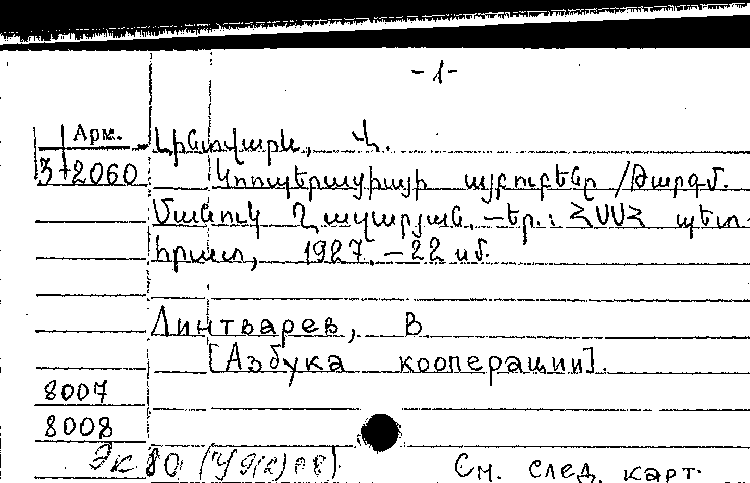 -1-
Арм. Լինտվարև, Վ.
3+2060 Կոոպերացիայի այբուբենը /Թարգմ.
Մանուկ Ղազարյան. —Եր.: ՀՍՍՀ պետ-
հրատ, 1927. —22 սմ.
Линтварев, В
[Азбука кооперации].
8007
8008
Эк 80 См. след. карт.